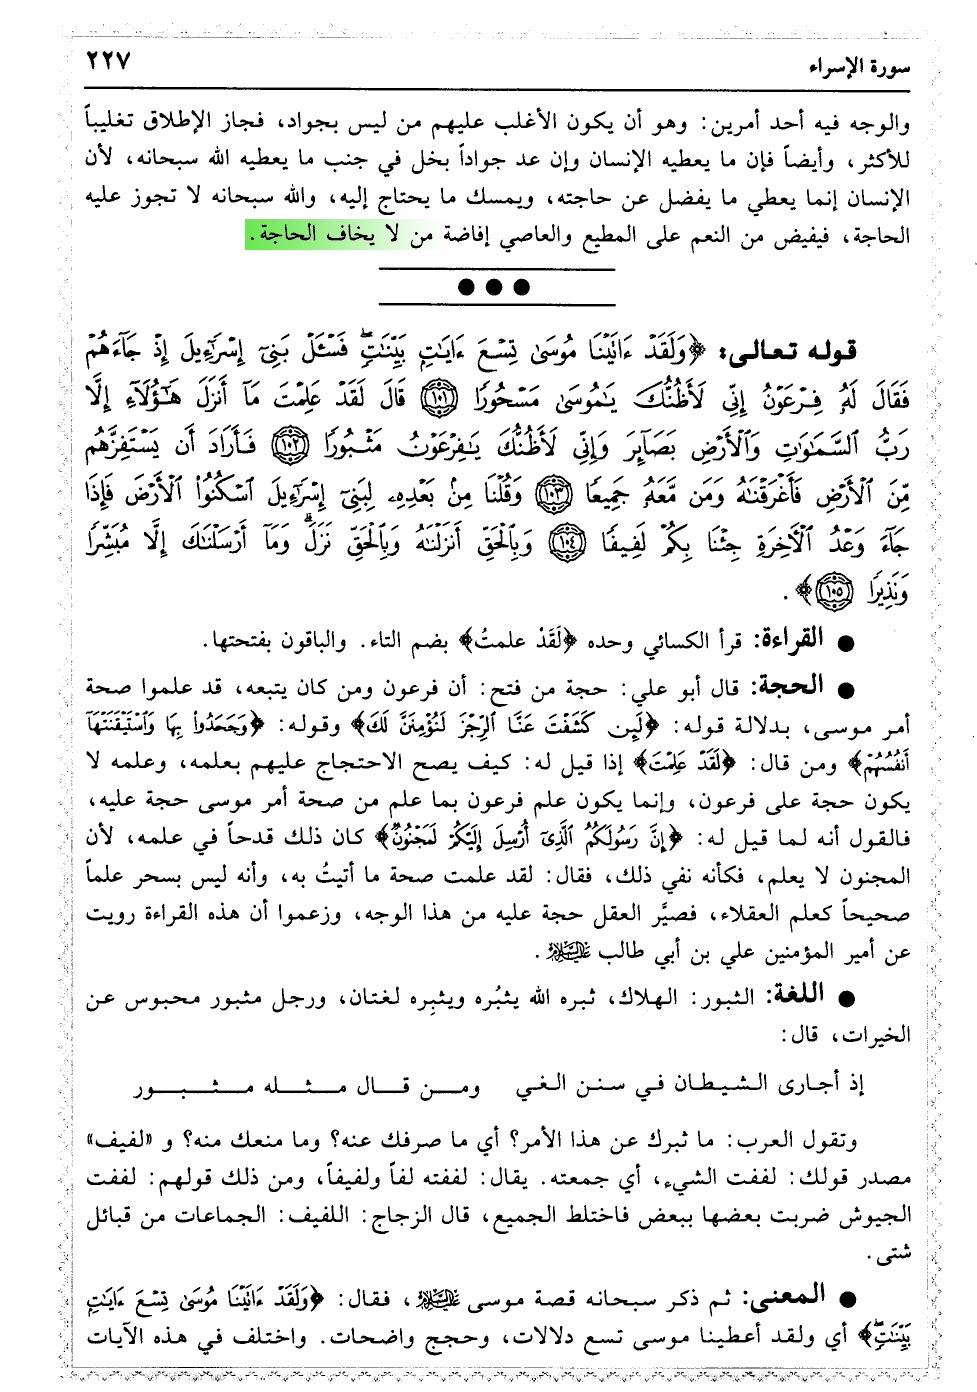 سورة الإسراء ٢٢٧
والوجه فيه أحد أمرين: وهو أن يكون الأغلب عليهم من ليس بجواد، فجاز الإطلاق تغليباً
للأكثر، وأيضاً فإن ما يعطيه الإنسان وإن عد جواداً بخل في جنب ما يعطيه الله سبحانه، لأن
الإنسان إنما يعطي ما يفضل عن حاجته، ويمسك ما يحتاج إليه، والله سبحانه لا تجوز عليه
الحاجة، فيفيض من النعم على المطيع والعاصي إفاضة من لا يخاف الحاجة.
قوله تعالى: ﴿وَلَقَدْ ءَاتَيْنَا مُوسَىٰ تِسْعَ ءَايَٰتٍۭ بَيِّنَٰتٍۖ فَسْـَٔلْ بَنِىٓ إِسْرَٰٓءِيلَ إِذْ جَآءَهُمْ
فَقَالَ لَهُۥ فِرْعَوْنُ إِنِّى لَأَظُنُّكَ يَٰمُوسَىٰ مَسْحُورًا ١٠١ قَالَ لَقَدْ عَلِمْتَ مَآ أَنزَلَ هَٰٓؤُلَآءِ إِلَّا
رَبُّ ٱلسَّمَٰوَٰتِ وَٱلْأَرْضِ بَصَآئِرَ وَإِنِّى لَأَظُنُّكَ يَٰفِرْعَوْنُ مَثْبُورًا ١٠٢ فَأَرَادَ أَن يَسْتَفِزَّهُم
مِّنَ ٱلْأَرْضِ فَأَغْرَقْنَٰهُ وَمَن مَّعَهُۥ جَمِيعًا ١٠٣ وَقُلْنَا مِنۢ بَعْدِهِۦ لِبَنِىٓ إِسْرَٰٓءِيلَ ٱسْكُنُوا۟ ٱلْأَرْضَ فَإِذَا
جَآءَ وَعْدُ ٱلْءَاخِرَةِ جِئْنَا بِكُمْ لَفِيفًا ١٠٤ وَبِٱلْحَقِّ أَنزَلْنَٰهُ وَبِٱلْحَقِّ نَزَلَۗ وَمَآ أَرْسَلْنَٰكَ إِلَّا مُبَشِّرًا
وَنَذِيرًا ١٠٥﴾.
● القراءة: قرأ الكسائي وحده ﴿لَقَدْ علمتُ﴾ بضم التاء. والباقون بفتحتها.
● الحجة: قال أبو علي: حجة من فتح: أن فرعون ومن كان يتبعه، قد علموا صحة
أمر موسى، بدلالة قوله: ﴿لَئِن كَشَفْتَ عَنَّا ٱلرِّجْزَ لَنُؤْمِنَنَّ لَكَ﴾ وقوله: ﴿وَجَحَدُوا۟ بِهَا وَٱسْتَيْقَنَتْهَآ
أَنفُسُهُمْ﴾ ومن قال: ﴿لَقَدْ عَلِمْتَ﴾ إذا قيل له: كيف يصح الاحتجاج عليهم بعلمه، وعلمه لا
يكون حجة على فرعون، وإنما يكون علم فرعون بما علم من صحة أمر موسى حجة عليه،
فالقول أنه لما قيل له: ﴿إِنَّ رَسُولَكُمُ ٱلَّذِىٓ أُرْسِلَ إِلَيْكُمْ لَمَجْنُونٌ﴾ كان ذلك قدحاً في علمه، لأن
المجنون لا يعلم، فكأنه نفي ذلك، فقال: لقد علمت صحة ما أتيتُ به، وأنه ليس بسحر علماً
صحيحاً كعلم العقلاء، فصيَّر العقل حجة عليه من هذا الوجه، وزعموا أن هذه القراءة رويت
عن أمير المؤمنين علي بن أبي طالب عليه السلام.
● اللغة: الثبور: الهلاك، ثبره الله يثبُره ويثبِره لغتان، ورجل مثبور محبوس عن
الخيرات، قال:
إذ أجارى الشيطان في سنن الغي ومن قال مثله مثبور
وتقول العرب: ما ثبرك عن هذا الأمر؟ أي ما صرفك عنه؟ وما منعك منه؟ و «لفيف»
مصدر قولك: لففت الشيء، أي جمعته. يقال: لففته لفاً ولفيفاً، ومن ذلك قولهم: لففت
الجيوش ضربت بعضها ببعض فاختلط الجميع، قال الزجاج: اللفيف: الجماعات من قبائل
شتى.
● المعنى: ثم ذكر سبحانه قصة موسى عليه السلام، فقال: ﴿وَلَقَدْ ءَاتَيْنَا مُوسَىٰ تِسْعَ ءَايَٰتٍۭ
بَيِّنَٰتٍۖ﴾ أي ولقد أعطينا موسى تسع دلالات، وحجج واضحات. واختلف في هذه الآيات